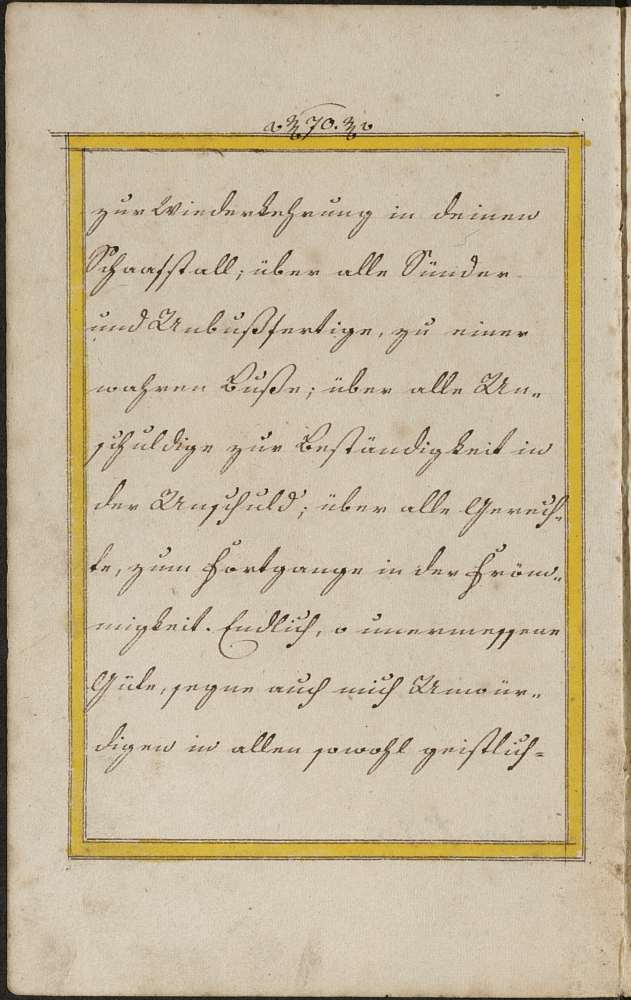 70.
zur Wiederkehrung in deinen
Schaafstall; über alle Sünder
und Unbußfertige, zu einer
wahren Buße; über alle Un-
schuldige zur Beständigkeit in
der Unschuld; über alle Gerech-
te, zum Fortgange in der Fröm-
migkeit. Endlich, o unermessene
Güte, segne auch mich Unwür-
digen in allen sowohl geistlich-